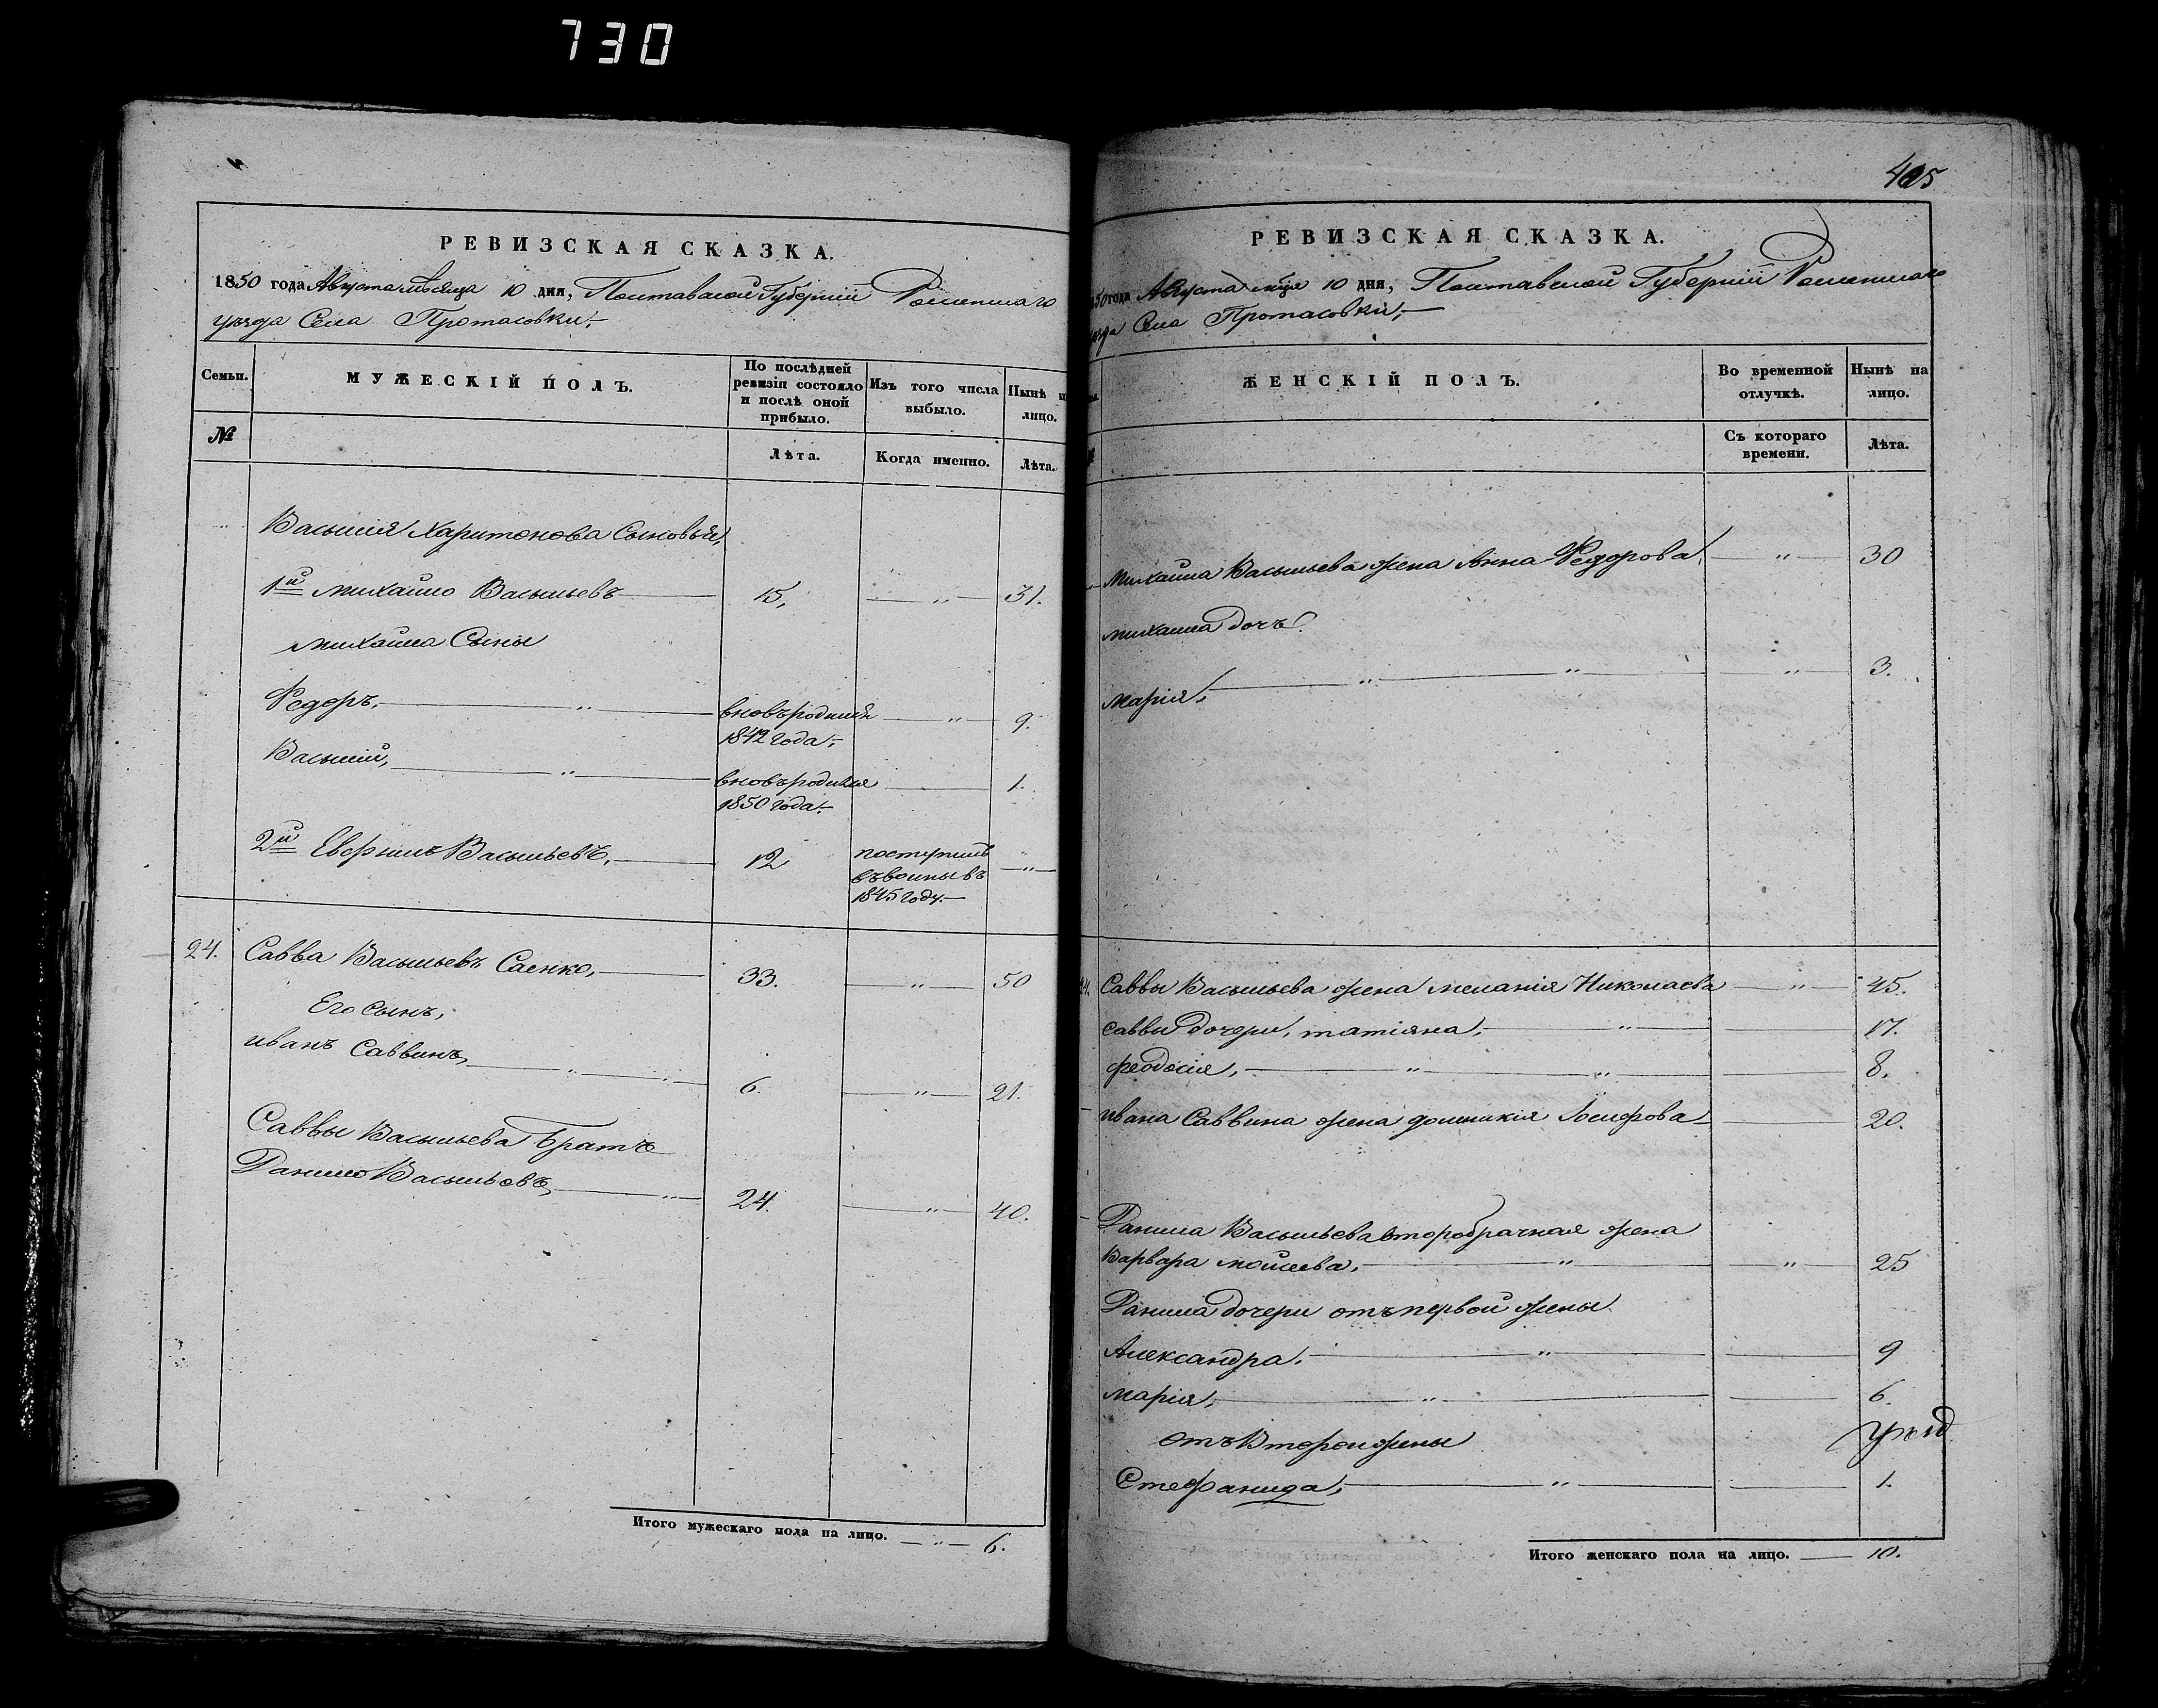 730
РЕВИЗСКАЯ СКАЗКА.
1850 года Августа мѣсяца 10 дня, Полтавской Губерніи Роменскаго
уѣзда Села Протасовки,
Семьи.
МУЖЕСКІЙ ПОЛЪ.
По послѣдней ревизіи состояло и послѣ оной прибыло.
Изъ того числа выбыло.
Нынѣ на лицо.
№
Лѣта.
Когда именно.
Лѣта.
Василія Харитонова Сыновья,
1й Михайло Васильевъ 15, " 31.
Михайла Сыны
Федоръ, " вновьродился 1842 года, " 9.
Василій, " вновьродился 1850 года, 1.
2й Евфимъ Васильевъ, 12 поступилъ въ воины въ 1845 году. "
24. Савва Васильевъ Саенко, 33. " 50
Его Сынъ,
Иванъ Саввинъ, " 6. " 21.
Саввы Васильева Братъ
Данило Васильевъ, " 24. " 40.
Итого мужескаго пола на лицо. " 6.
405
РЕВИЗСКАЯ СКАЗКА.
1850 года Августа мѣця 10 дня, Полтавской Губерніи Роменскаго
уѣзда Села Протасовки,
ЖЕНСКІЙ ПОЛЪ.
Во временной отлучкѣ.
Нынѣ на лицо.
№
Съ котораго времени.
Лѣта.
Михайла Васильева жена Анна Федорова " 30
Михайла дочь
Марія, " " " 3.
24. Саввы Васильева жена Меланія Николаева " 45.
Саввы дочери, Татіяна, " 17.
Феодосія, " " 8.
Ивана Саввина жена Домникія Іосифова 20.
Данила Васильева второбрачная жена
Варвара Моисеева, " " 25
Данила дочери отъ первой жены
Александра. " 9
Марія, " 6.
отъ Второй жены
Стефанида, " 1.
Итого женскаго пола на лицо. 10.